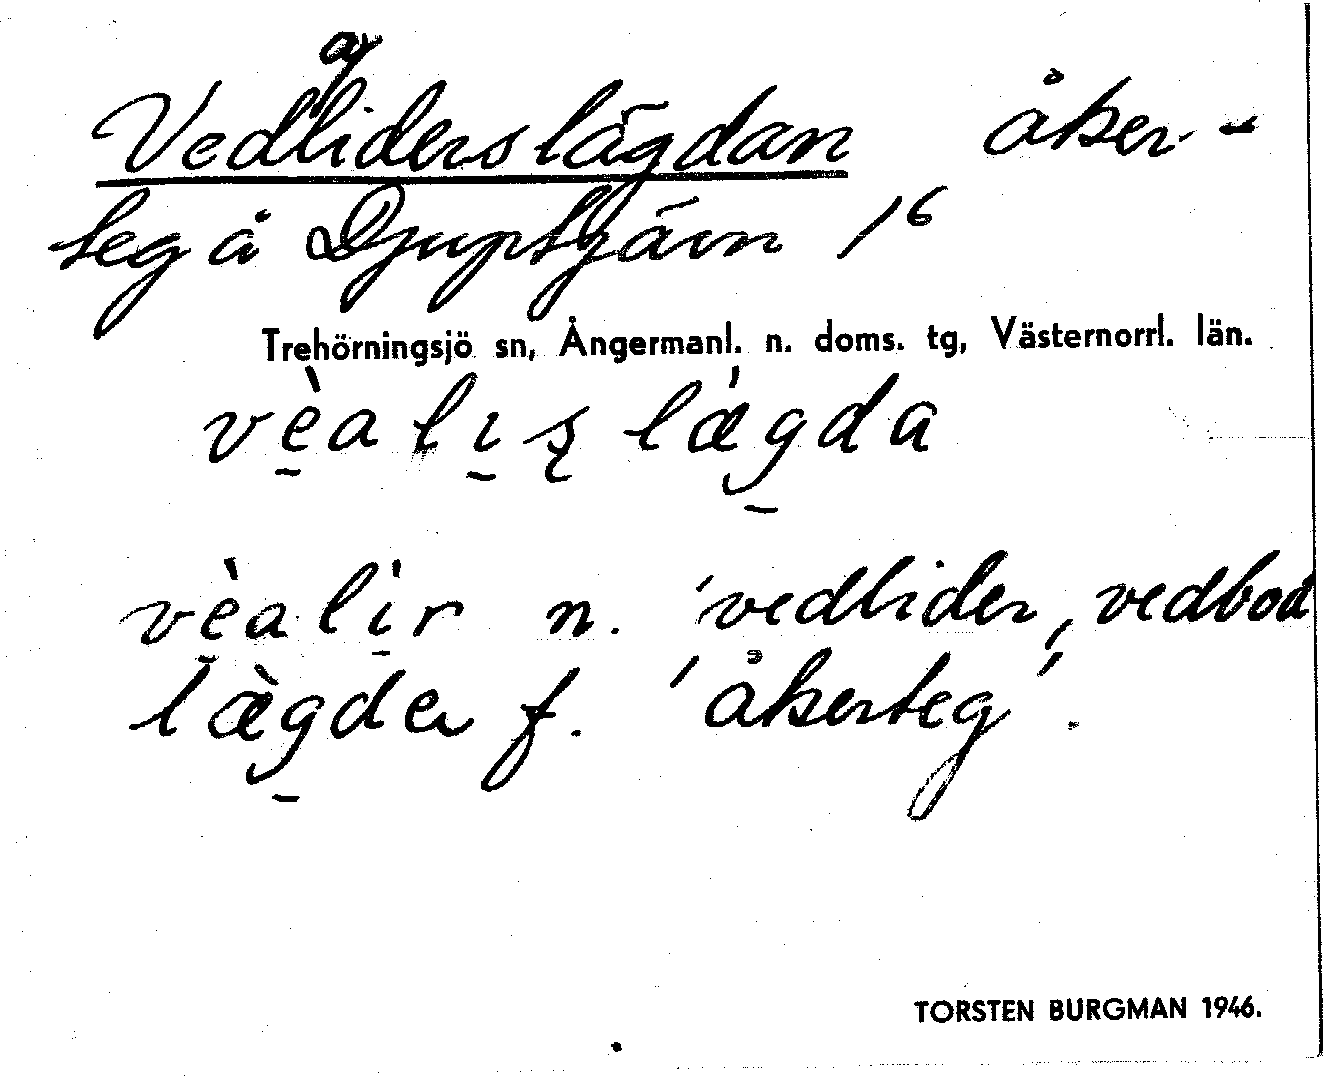 Vedaliderslägdan åker-
teg å Djuptjärn 1⁶
Trehörningsjö sn, Ångermanl. n. doms. tg, Västernorrl. län.
vè̠alı̠ʂlǽg̠da
vè̠alì̠r n. 'vedlider, vedbod'
læ̀g̠der f. 'åkerteg'.
TORSTEN BURGMAN 1946.